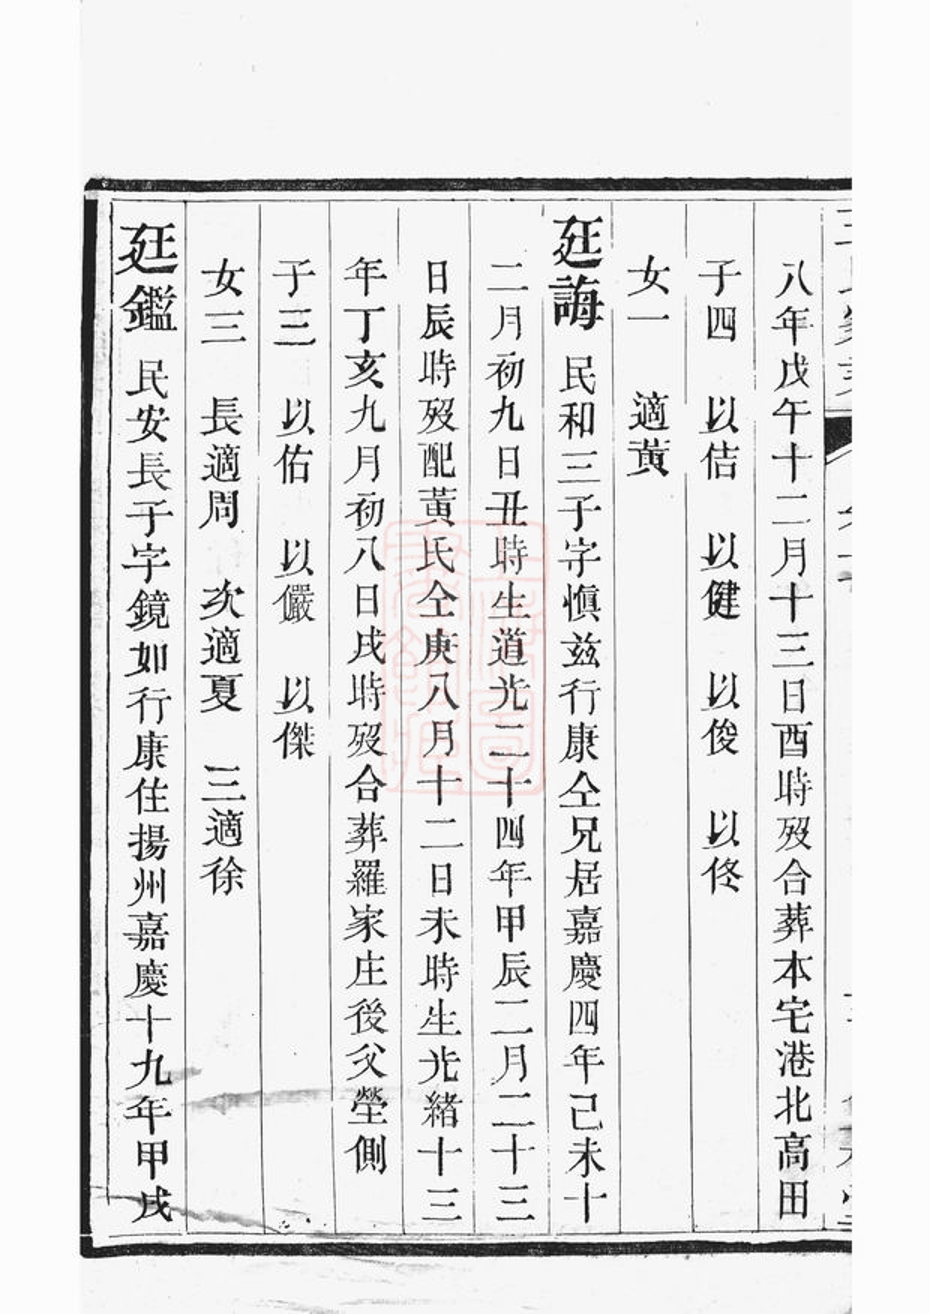 八年戊午十二月十三日酉時歿合葬本宅港北高田
子四 以佶 以健 以俊 以佟
女一 適黄
廷誨 民和三子字愼兹行康仝兄居嘉慶四年己未十
二月初九日丑時生道光二十四年甲辰二月二十三
日辰時歿配黄氏仝庚八月十二日未時生光緒十三
年丁亥九月初八日戌時歿合葬羅家庄後父塋側
子三 以佑 以儼 以傑
女三 長適周 次適夏 三適徐
廷鑑 民安長子字鏡如行康住揚州嘉慶十九年甲戌